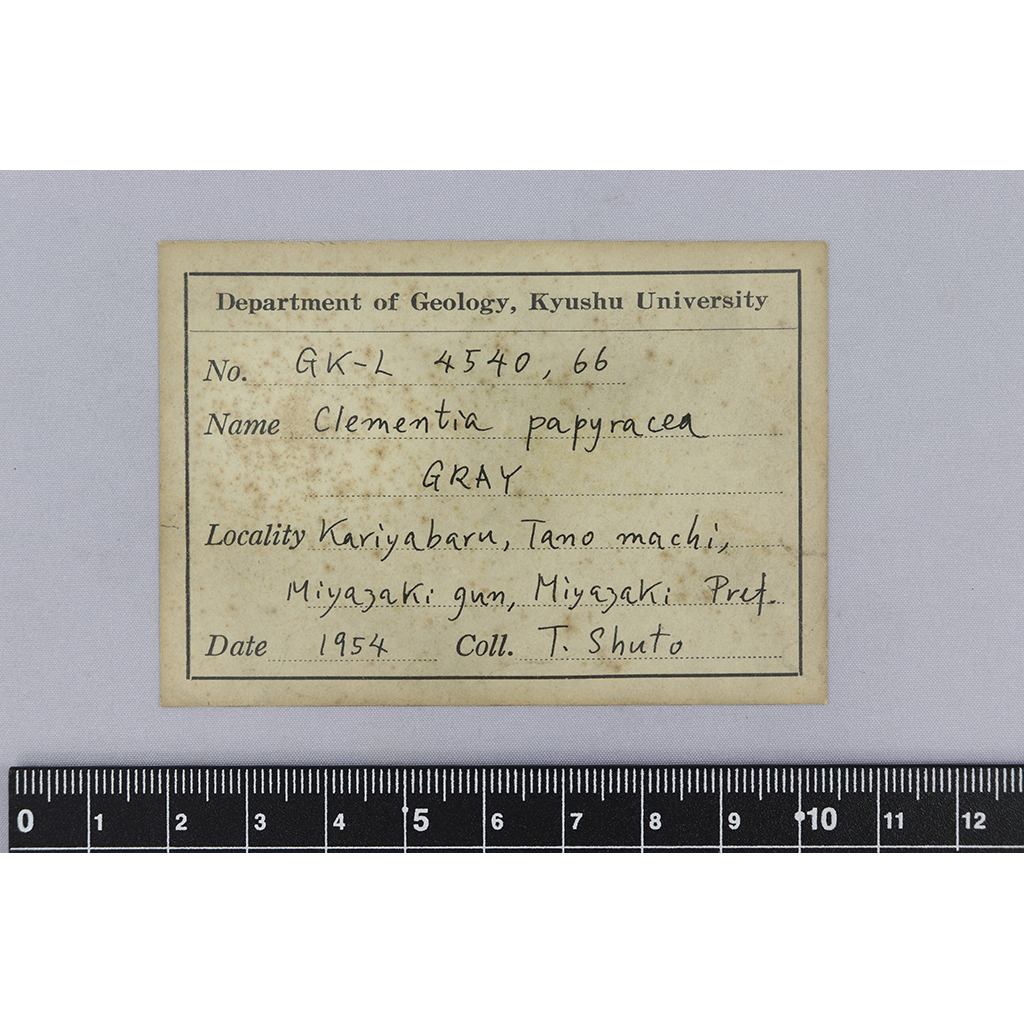 Department of Geology, Kyushu University
No. GK-L 4540, 66
Name Clementia papyracea
GRAY
Locality Kariyabaru, Tano machi,
Miyazaki gun, Miyazaki Pref.
Date 1954 Coll. T. Shuto
0 1 2 3 4 5 6 7 8 9 10 11 12